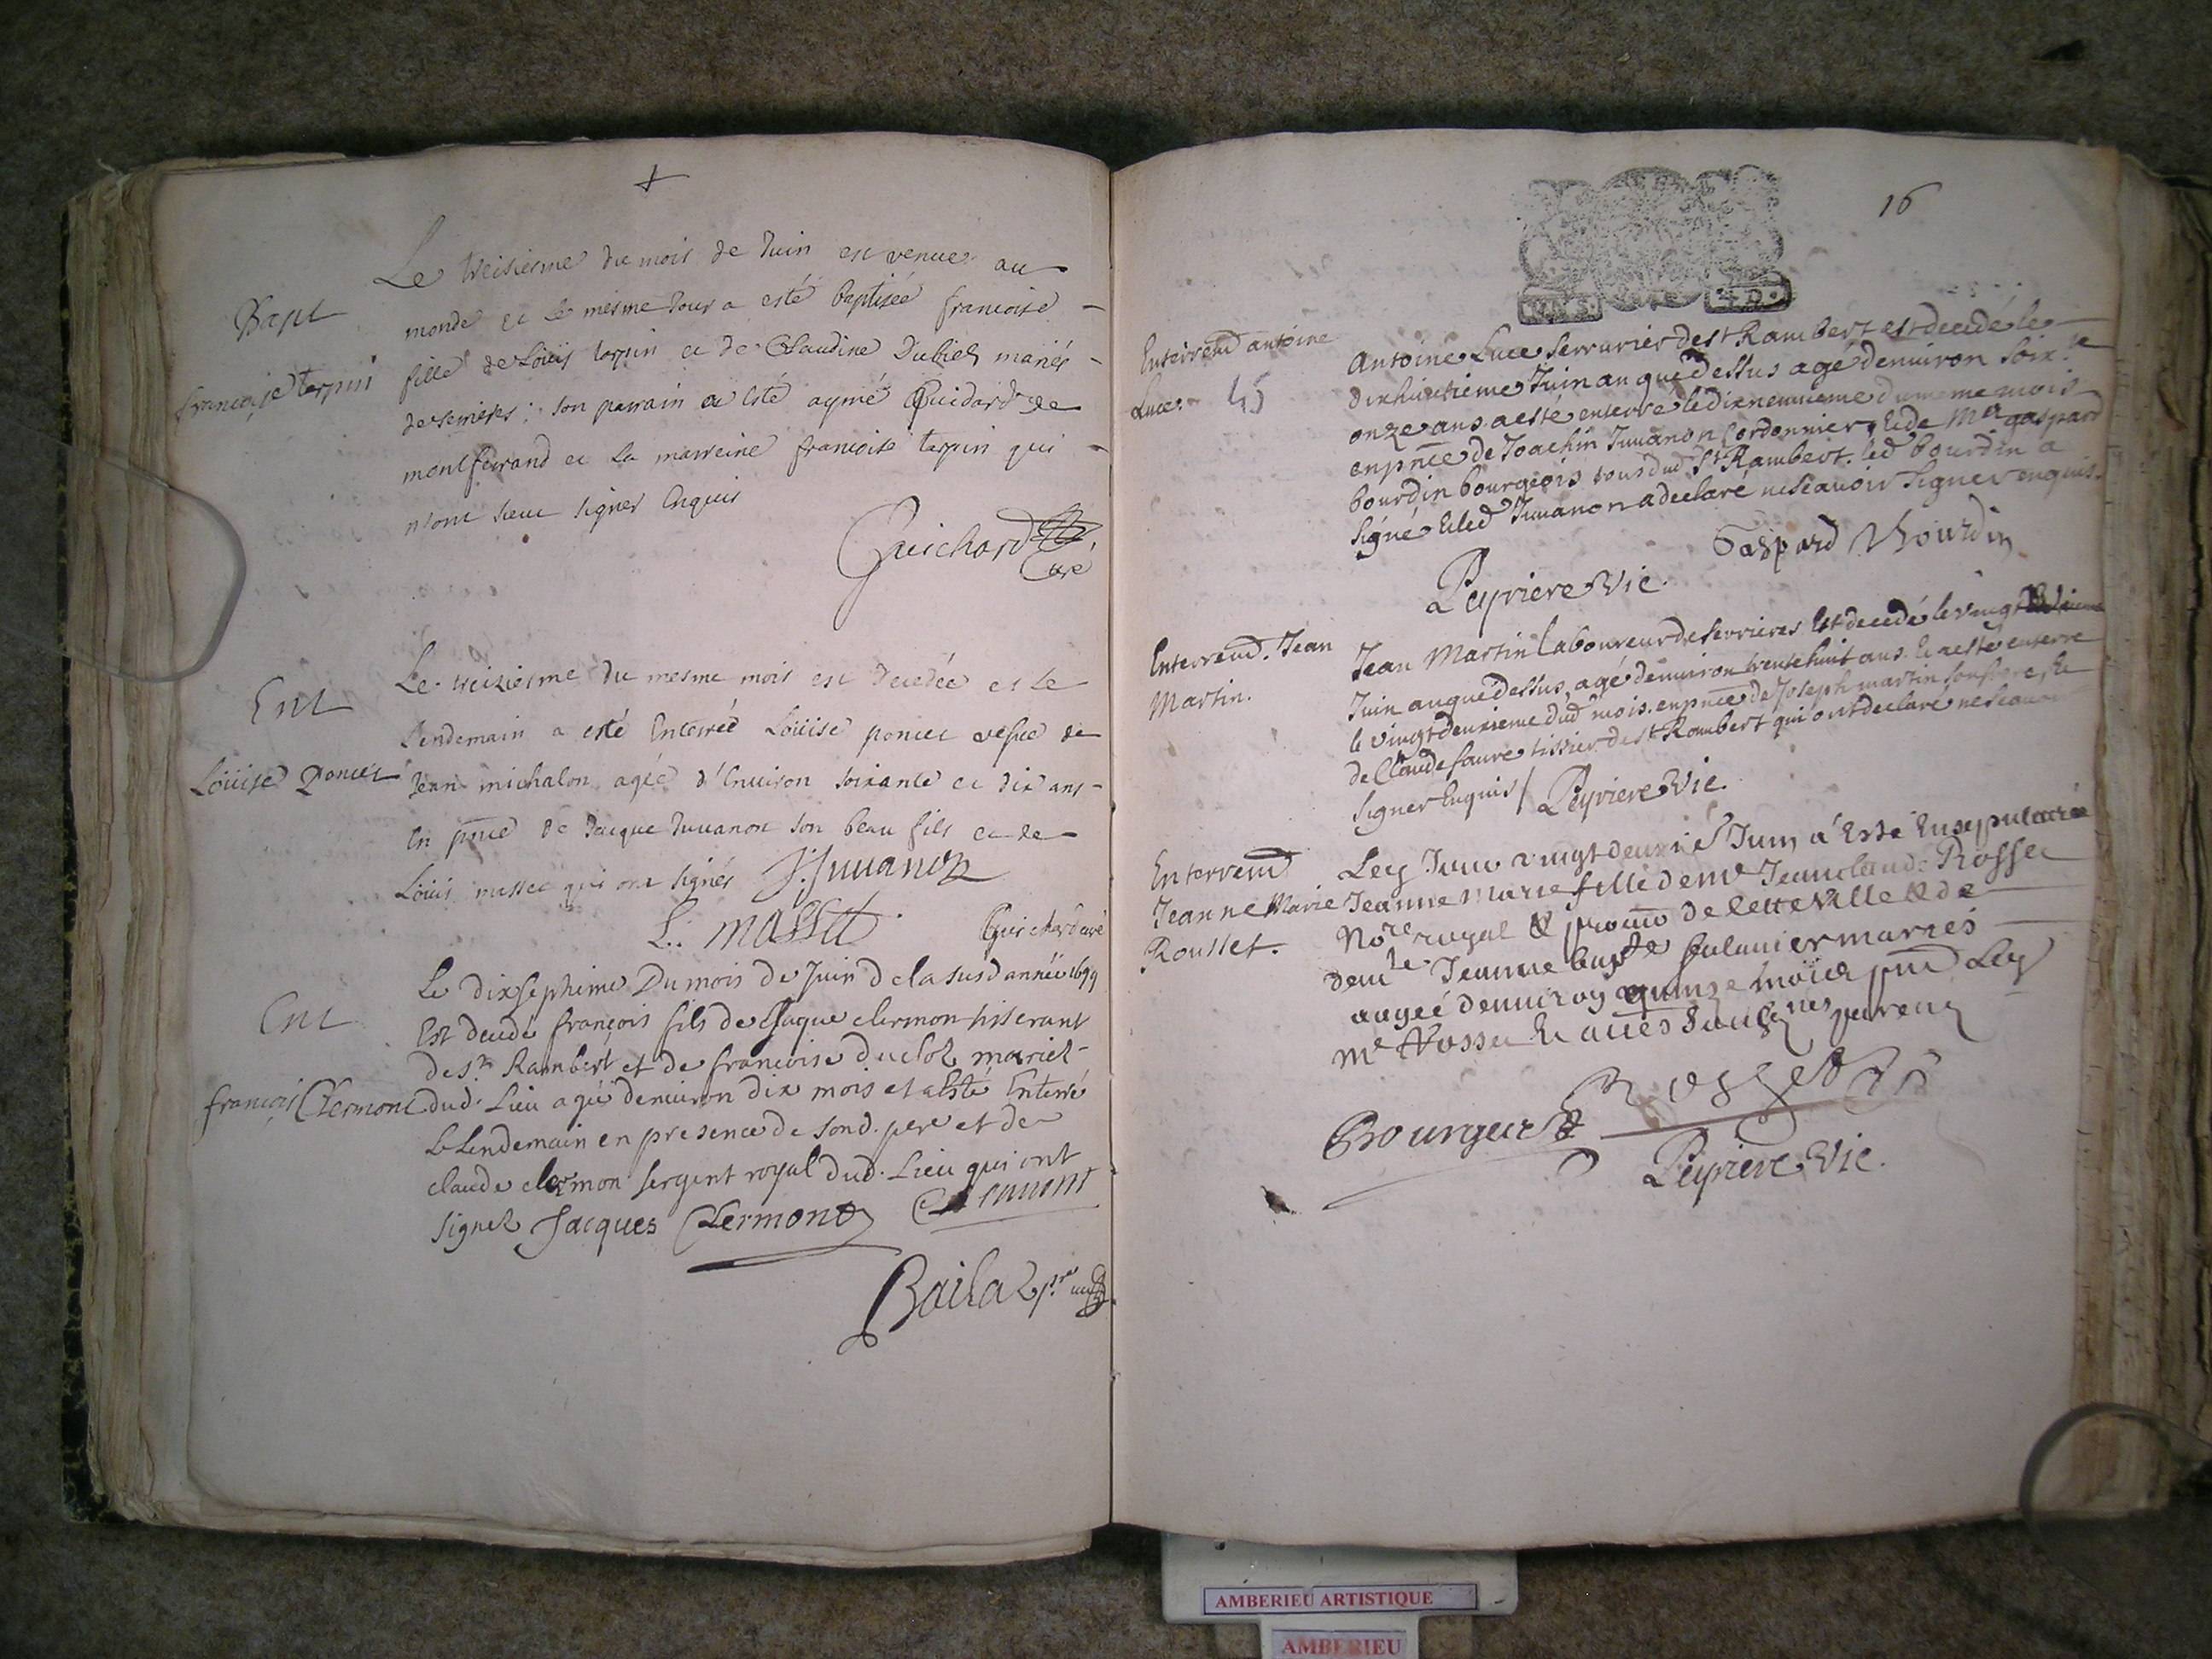 Bapt
francoise terpin
Le treisiesme du mois de Juin est venue au
monde et le mesme Jour a esté baptisée francoise
fille de Loüis terpin et de Claudine Dubiez mariés
de serrieres; son parrain a Esté aymé Guidard de
montferrand et la marreine francoise terpin qui
n'ont sceu signer Enquis
Guichard
Curé
Ent
Loüise Poncet
Le treiziesme du mesme mois est decedée et le
Lendemain a esté Enterrée Loüise poncet vefue de
Jean michalon agée d'Enuiron soixante et dix ans
En pnce de Jacque Juuanon son beau fils et de
Loüis masset qui ont signés J. Juuanon
L. massett
Guichard curé
Ent
françois Clermont
Le dixseptieme Du mois de Juin de la susd année 1699
Est decedé françois fils de Jaque clermon tisserant
de St Rambert et de francoise duclos mariez
dud. Lieu agé denuiron dix mois et a Esté Enterré
le Lendemain en presence de sond. pere et de
claude clermon sergent royal dud. Lieu qui ont
signez Jacques Clermont Clermont
Bailaz pre
16
Enterremt antoine
Luce. 45
Antoine Luce serrurier de st Rambert est decedé le
dixhuictieme Juin an que dessus agé denuiron soixte
onze ans a esté enterré le dixneuuieme du meme mois
en pnce de Joachin Juuanon Cordonnier, et de Mtr gaspard
bourdin bourgeois tous dud St Rambert. led bourdin a
signé et led Juuanon a declaré ne scauoir signer enquis.
Gaspard Bourdin
Peyriere Vic.
Enterremt. Jean
Martin.
Jean Martin Laboureur de serrieres Est decedé le vingt
Juin an que dessus, agé denuiron trente huit ans. Et a esté enterré
le vingt deuxieme dud mois. en pnce de Joseph martin son frere, Et
de Claude faure tissier de st Rambert qui ont declaré ne scauoir
signer Enquis / Peyriere Vic.
Enterremt
Jeanne Marie
Rousset.
Lez Jour vingt deuxie Juin a Esté Ensepulturée
Jeanne Marie fille de me Jeanclaude Rosset
Nore royal & procu de cette ville & de
demlle Jeanne bapte mariés
augeé denuiron quinze mois pnt Led
me Rosset Et parents
Rosset
Bourgeat
Peyriere Vic.
AMBERIEU ARTISTIQUE
AMBERIEU